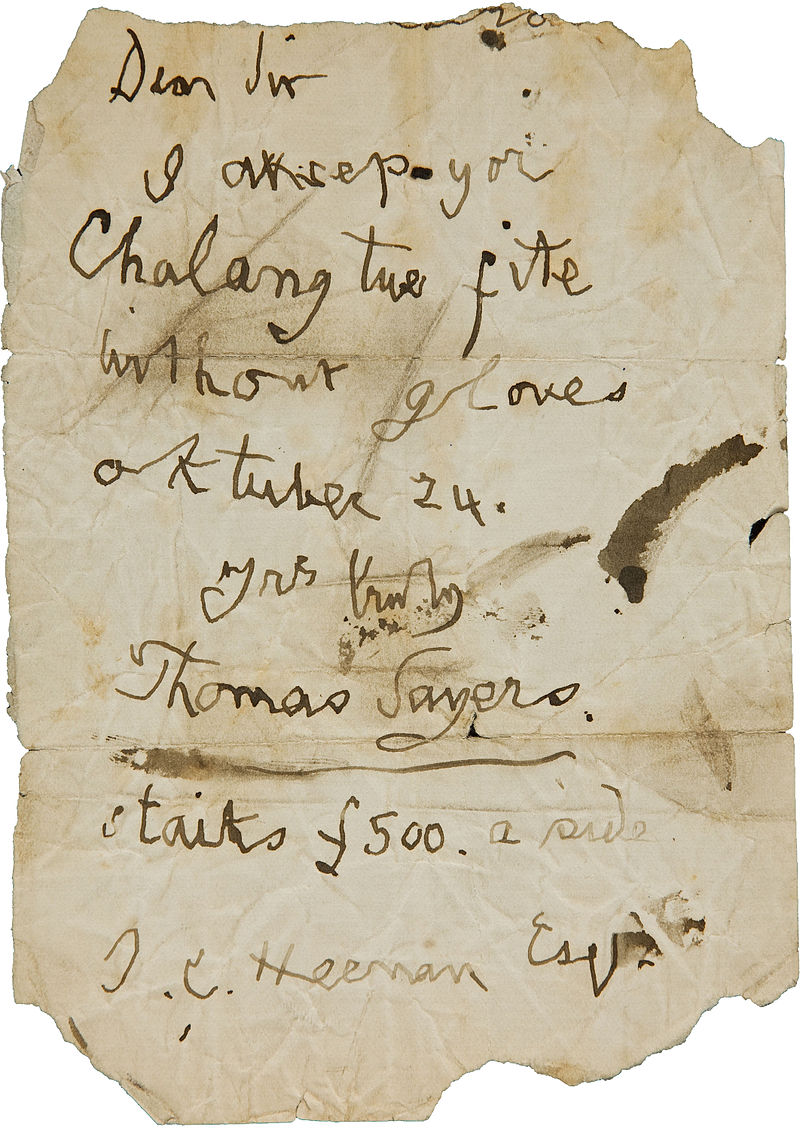 Dear Sir
I aksep yor
Chalang tue fite
without gloves
oktuber 24.
Yrs truly
Thomas Sayers.
staiks £500. a side
J. C. Heenan Esqr.